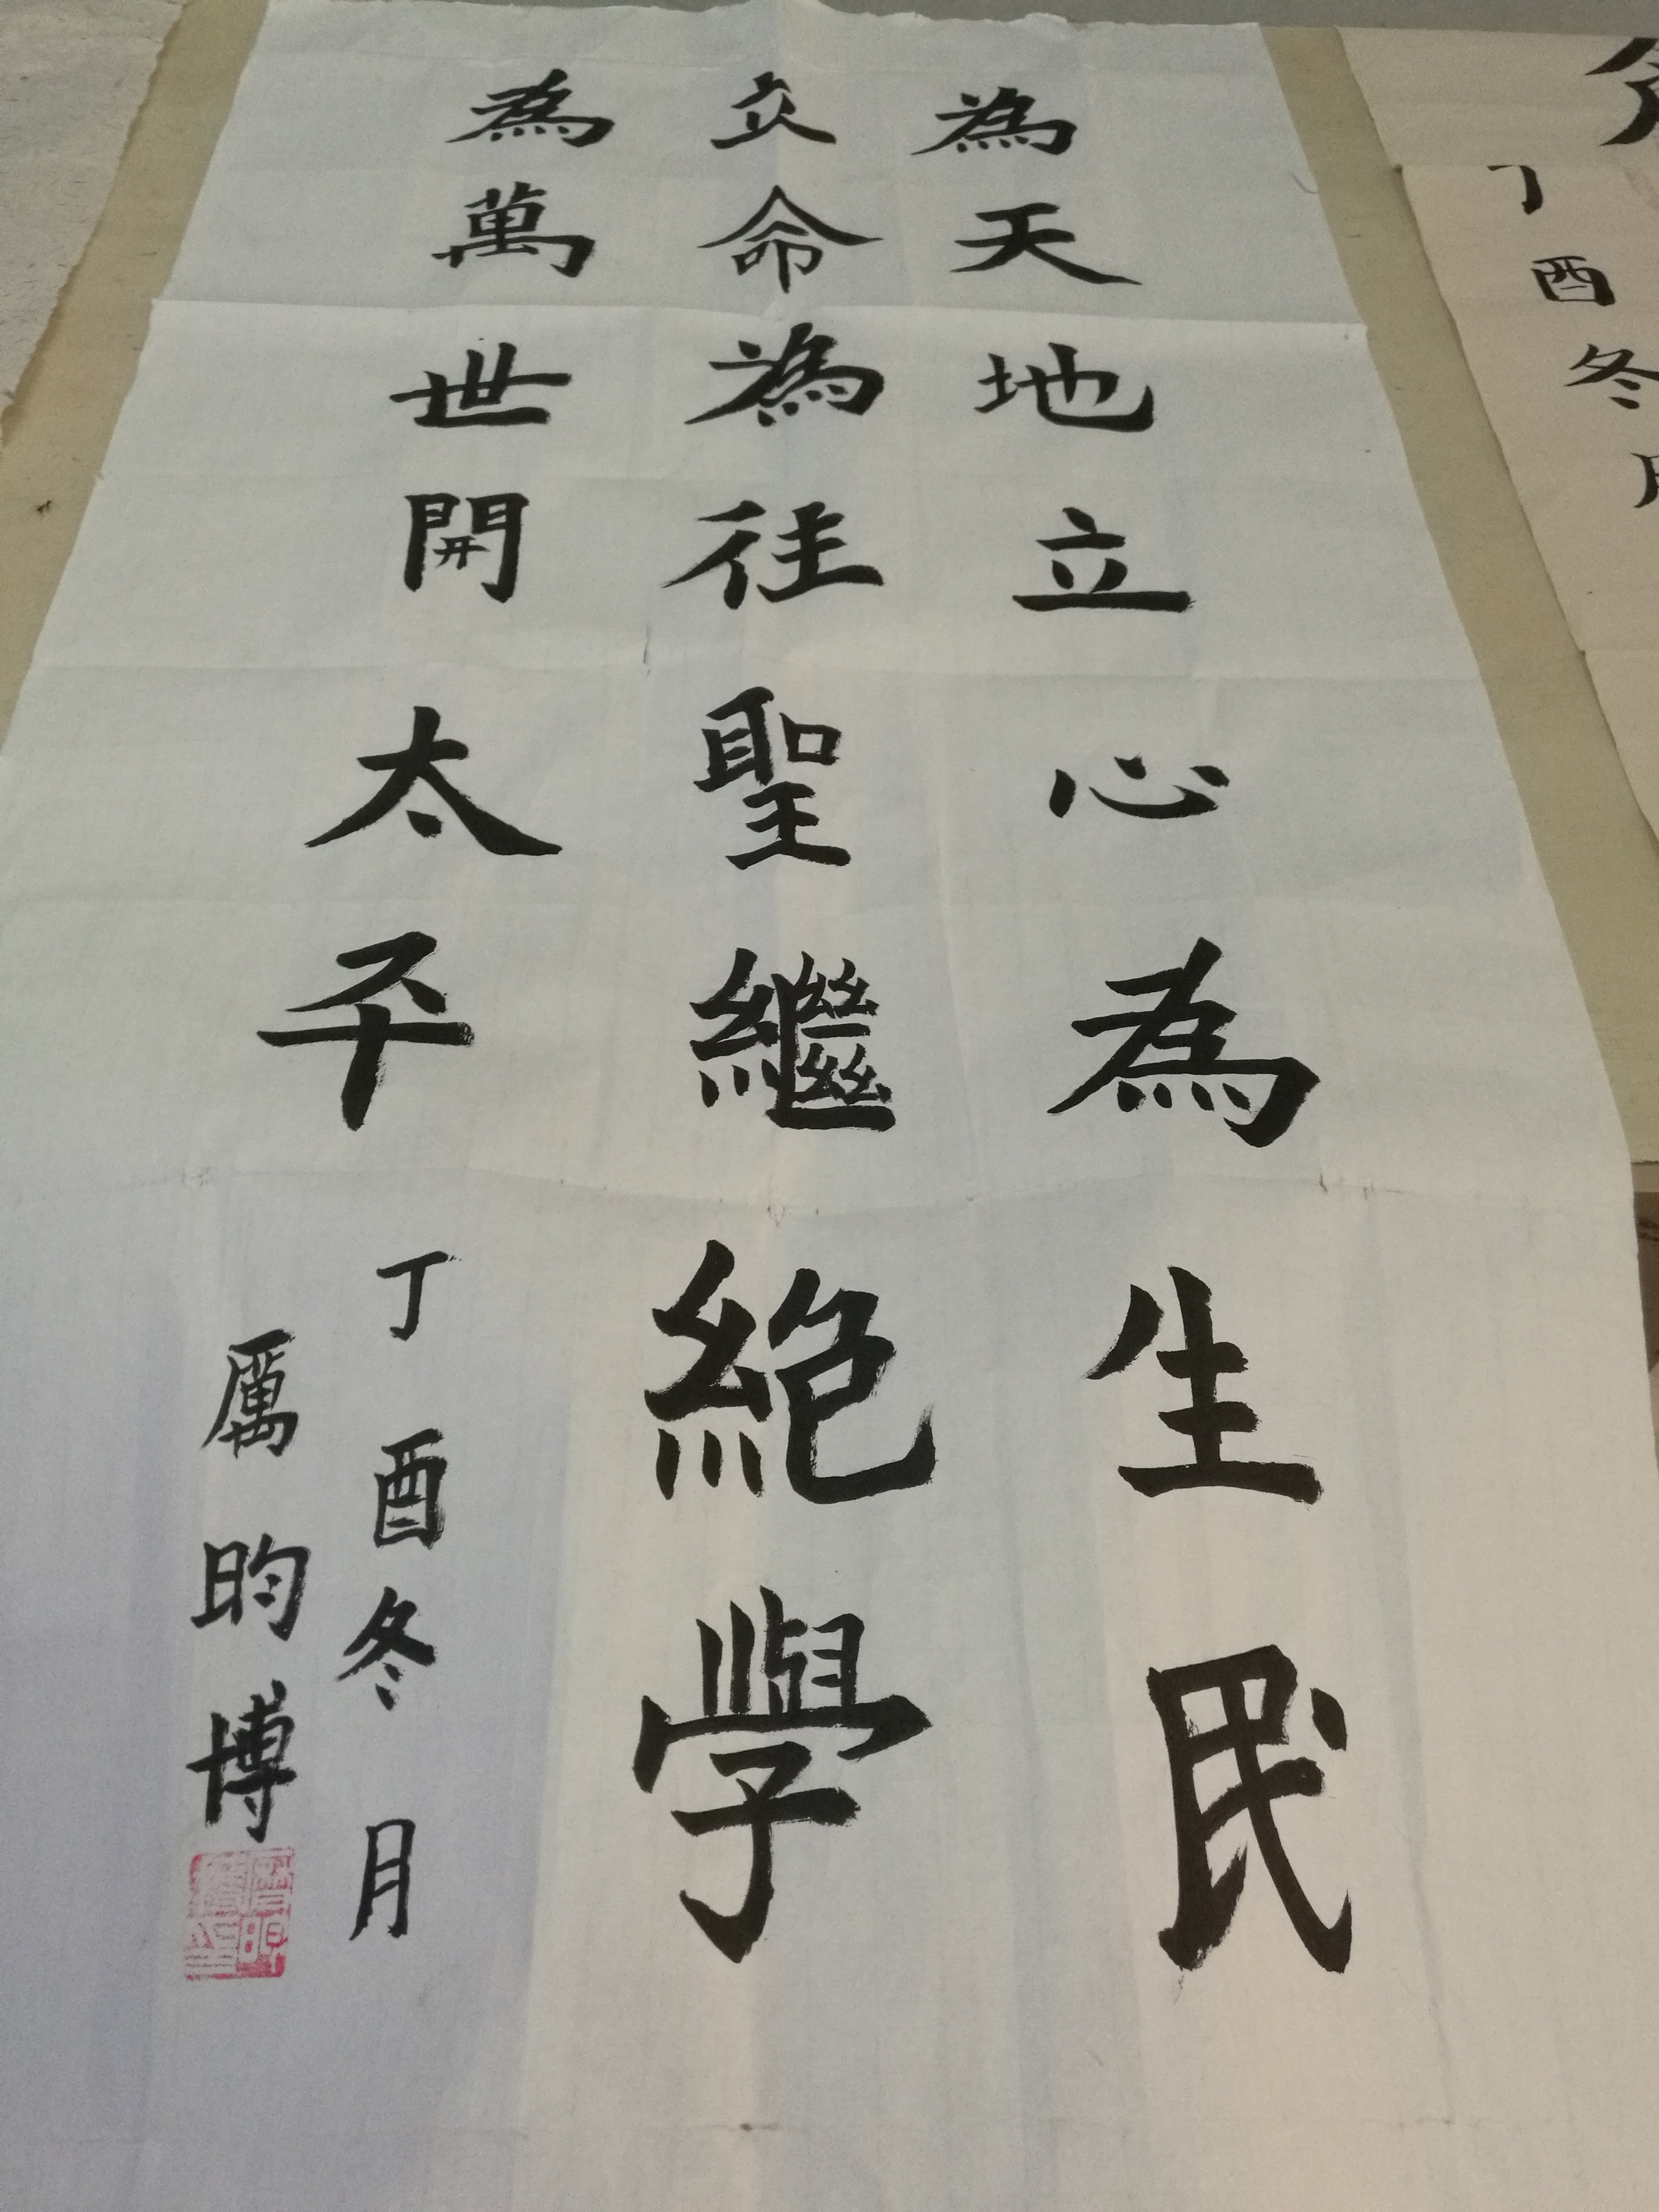 為天地立心為生民
立命為往聖繼絕學
為萬世開太平
丁酉冬月
厲昀博
丁酉冬月